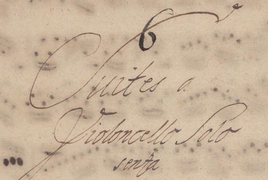 6
Suites a
Violoncello Solo
senza